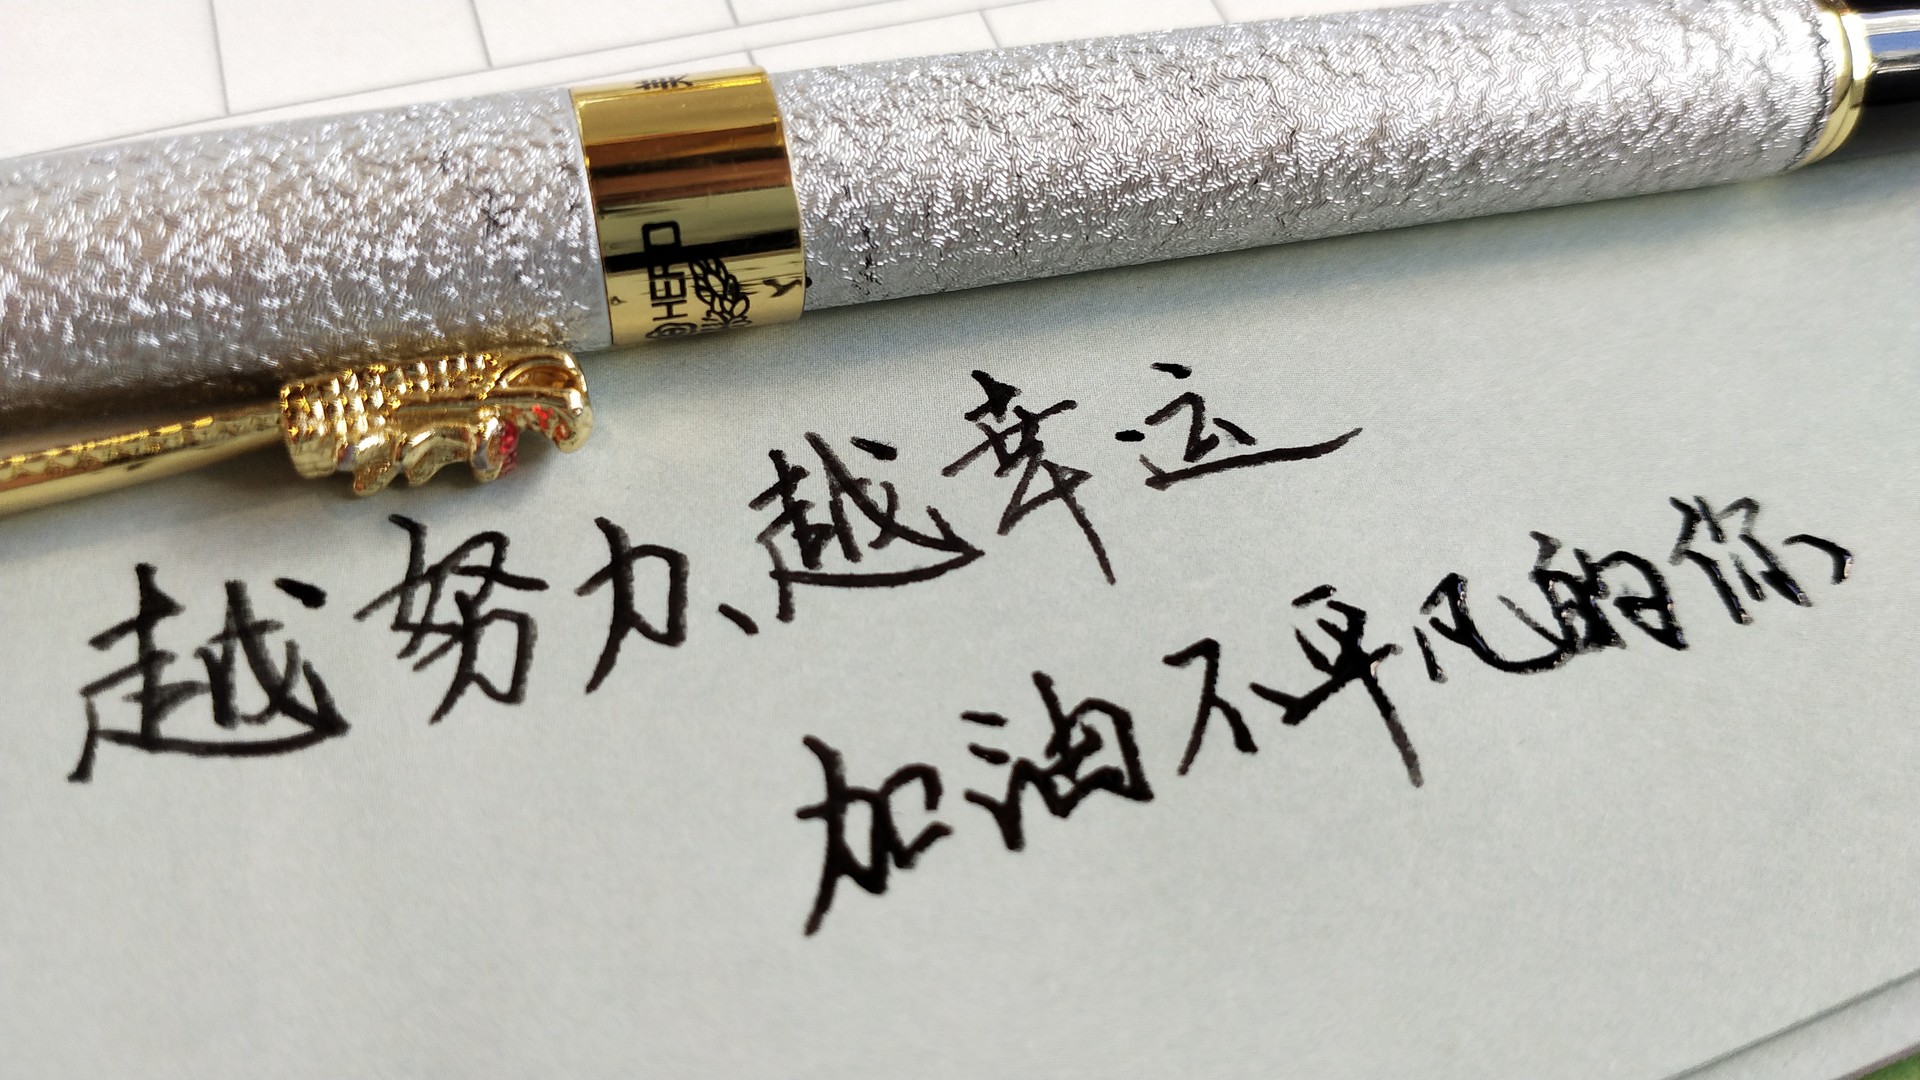 HERO
越努力、越幸运
加油不平凡的你、